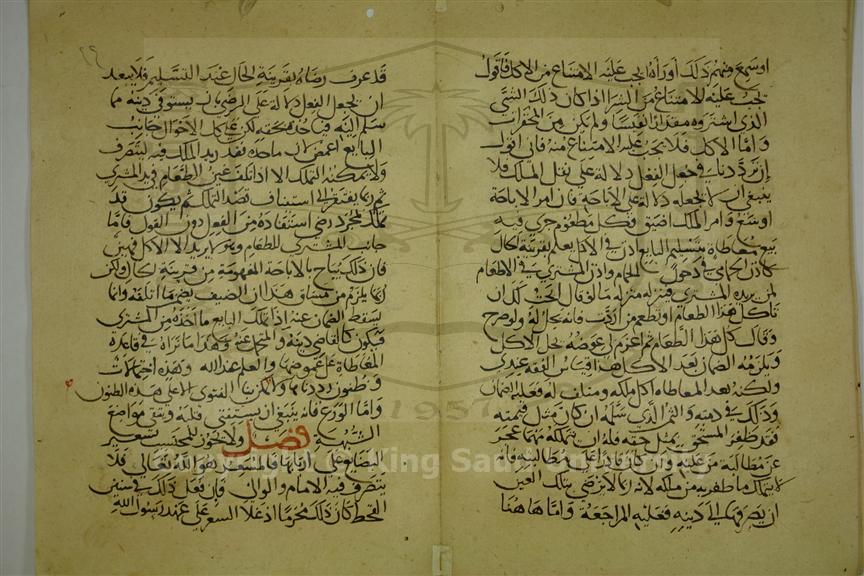 او سمع منهم ذلك او رآه ايجب عليه الامتناع من الاكل فاقول
يجب عليه الامتناع من الشرا اذا كان ذلك الشي
الذي اشتروه مقدارا نفيسا ولم يكن من المحقرات
واما الاكل فلا يجب عليه الامتناع منه فاني اقول
ان ترددنا في جعل الفعل دلالة على نقل الملك فلا
ينبغي ان لا نجعله دلالة على الاباحة فان امر الاباحة
اوسع وامر الملك اضيق فكل مطعوم جرى فيه
بيع معاطاة فتسليم البايع اذن في الاكل يعلم بقرينة الحال
كاذن الحمامي في دخول الحمام واذن المشتري في الاطعام
لمن يريده المشتري فينزل منزلة ما لو قال ابحت لك ان
تاكل هذا الطعام او تطعم من اردت فانه يحل له ولو صرح
وقال كل هذا الطعام ثم اغرم لي عوضه لحل الاكل
ويلزمه الضمان بعد الاكل هذا قياس الفقه عندي
ولكنه بعد المعاطاه اكل ملكه ومتلف له فعليه الضمان
وذلك في ذمته والثمن الذي سلمه ان كان مثل قيمته
فقد ظفر المستحق بمثل حقه فله ان يتملكه مهما عجز
عن مطالبة من عليه وان كان قادرا على مطالبته فانه
لا يتملك ما ظفر به من ملكه لانه ربما لا يرضى بتلك العين
ان يصرفها الى دينه فعليه المراجعة واما هاهنا
قد عرف رضاه بقرينة الحال عند التسليم فلا يبعد
ان يجعل الفعل دلالة على الرضى بان يستوفي دينه مما
سلم اليه فياخذه بحقه لكن على كل الاحوال جانب
البايع اغمض لان ما اخذه قد يريد الملك فيه ليتصرف
ولا يمكنه التملك الا اذا تلف عين الطعام في يد المشتري
ثم ربما يفتقر الى استئناف قصد التملك ثم يكون قد
تملك بمجرد رضى استفاده من الفعل دون القول فاما
جانب المشتري للطعام وهو لا يريد الا الاكل فهين
فان ذلك يباح بالاباحة المفهومة من قرينة الحال ولكن
ربما يلزم من مساق هذا ان الضيف يضمن ما اتلفه وانما
يسقط الضمان عنه اذا تملك البايع ما اخذه من المشتري
فيكون كالقاضي دينه والمتحمل عنه فهذا ما نراه في قاعدة
المعاطاة على غموضها والعلم عند الله وهذه احتمالات
وظنون رددناها ولا يمكن بنا الفتوى الا على هذه الظنون
واما الورع فانه ينبغي ان يستفتي قلبه ويتقي مواضع
الشبهة فصل ولا يجوز للمحتسب تسعير
البضايع على اربابها فالمسعر هو الله تعالى فلا
يتصرف فيه الامام والوالي وان فعل ذلك في سنين
القحط كان ذلك محرما اذ غلا السعر على عهد رسول الله
Copyright © King Saud University
1957